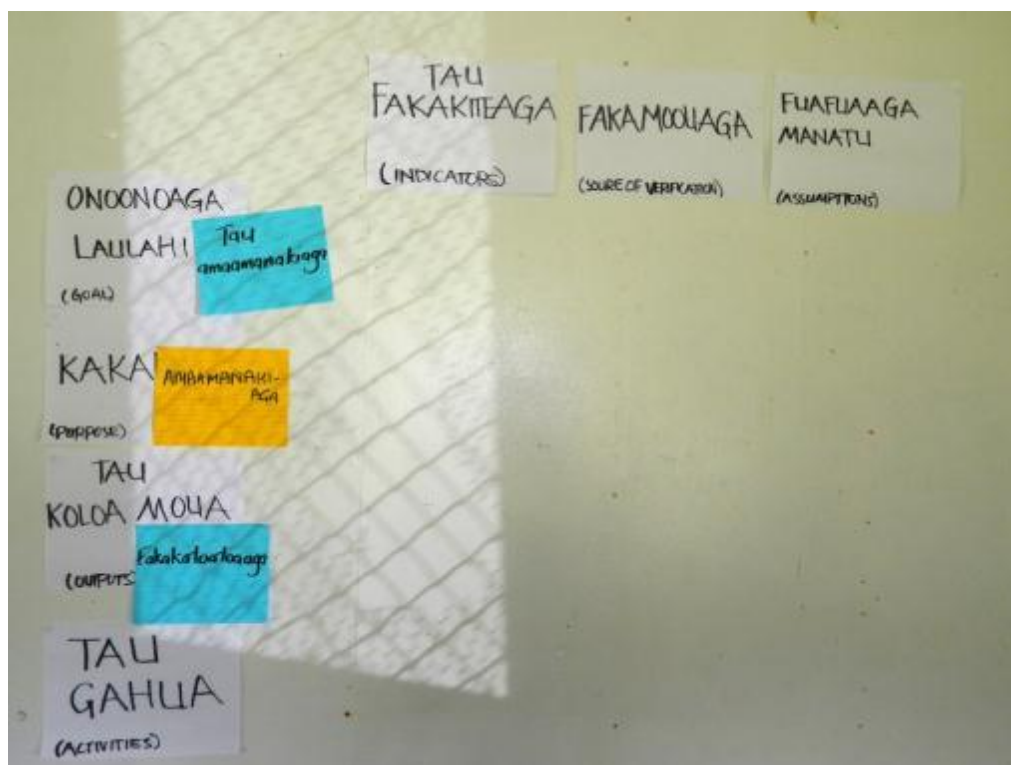 TAU
FAKAKITEAGA
(INDICATORS)
FAKAMOOLIAGA
(SOURE OF VERIFICATION)
FUAFUAAGA
MANATU
(ASSUMPTIONS)
ONOONOAGA
LAULAHI
(GOAL)
Tau
amaamanakiaga
KAKAI
(PURPOSE)
AMAAMANAKI-
AGA
TAU
KOLOA MOUA
(OUTPUTS)
Fakakoloaloaaga
TAU
GAHUA
(ACTIVITIES)